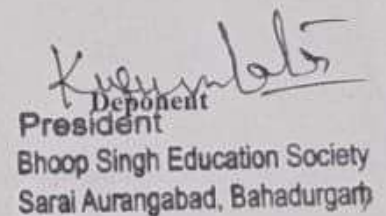 Deponent
President
Bhoop Singh Education Society
Sarai Aurangabad, Bahadurgarh